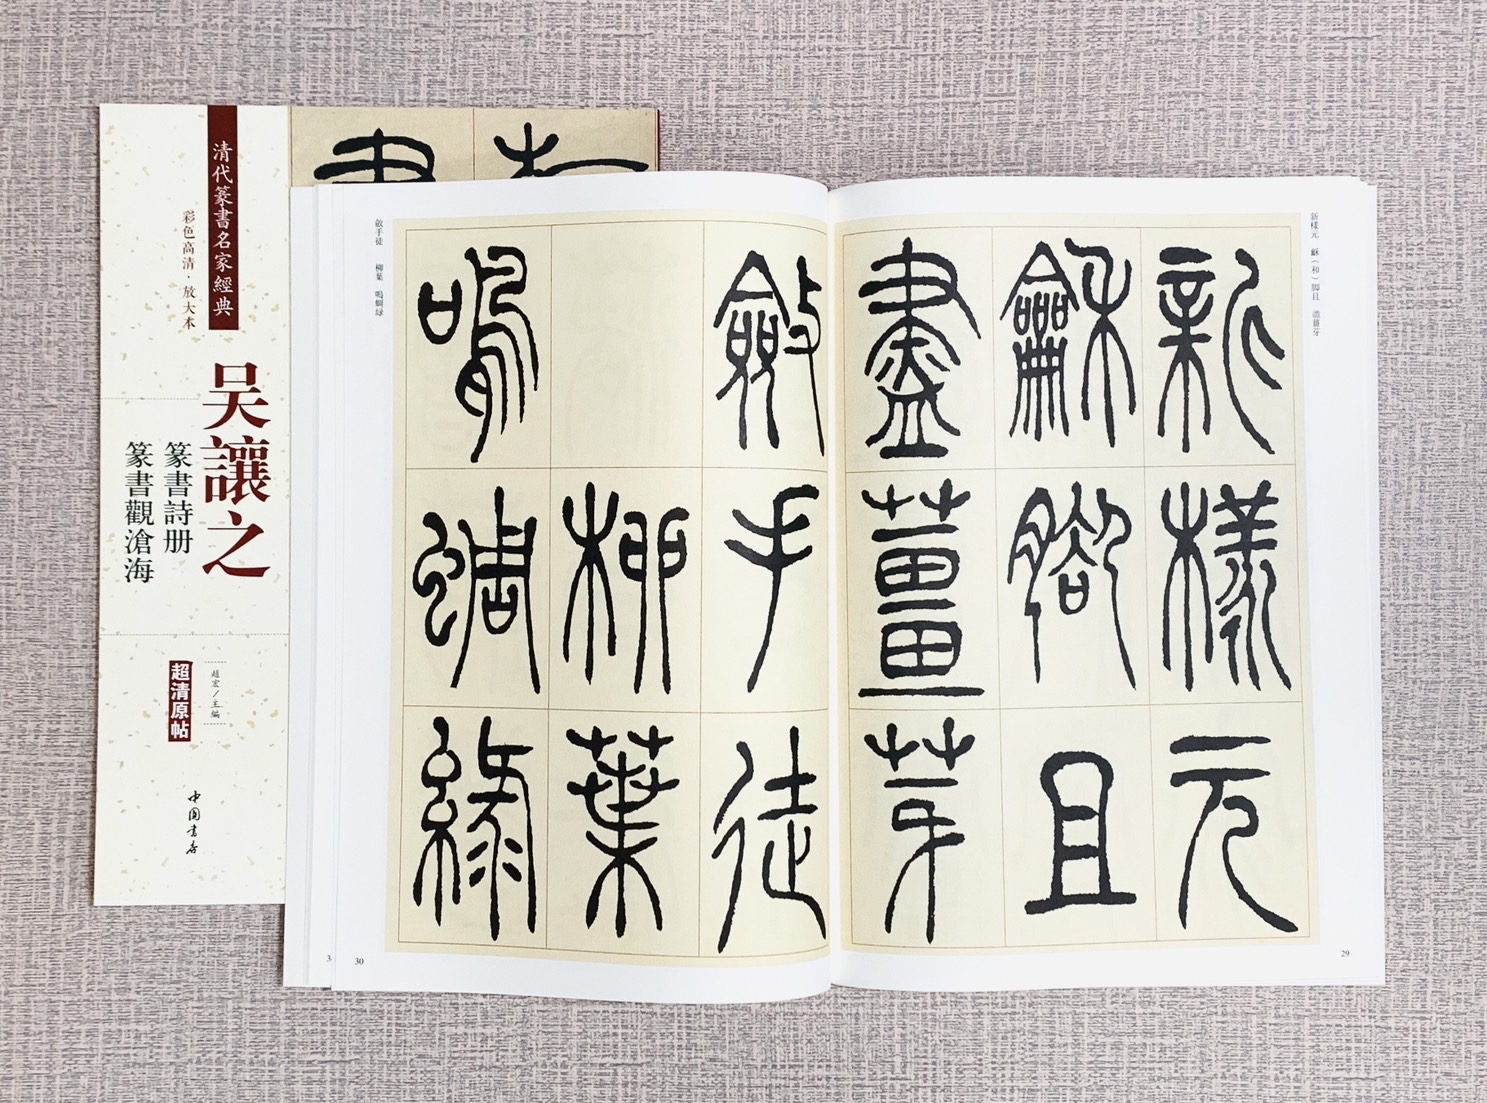 清代篆書名家經典
彩色高清·放大本
吴讓之
篆書詩册
篆書觀滄海
趙宏/主編
超清原帖
中國書店
新樣元 龢(和)脚且 盡薑芽
新樣元
龢脚且
盡薑芽
29
斂手徒
柳葉
鳴蜩緑
斂手徒 柳葉 鳴蜩緑
30
3